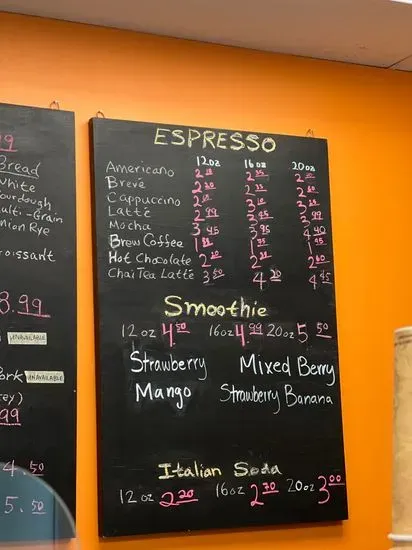 9
Bread
White
ourdough
ulti-Grain
nion Rye
roissant
8.99
UNAVAILABLE
ork UNAVAILABLE
ey)
99
4.50
5.50
ESPRESSO
12oz 16oz 20oz
Americano 2
Breve 2
Cappuccino 2
Latté 2.99 3.45 3.99
Mocha 3.45 4.40
Brew Coffee 1
Hot Chocolate 2
Chai Tea Latté 3 4 4.45
Smoothie
12oz 4.50 16oz 4.99 20oz 5.50
Strawberry Mixed Berry
Mango Strawberry Banana
Italian Soda
12oz 2.20 16oz 2.70 20oz 3.00